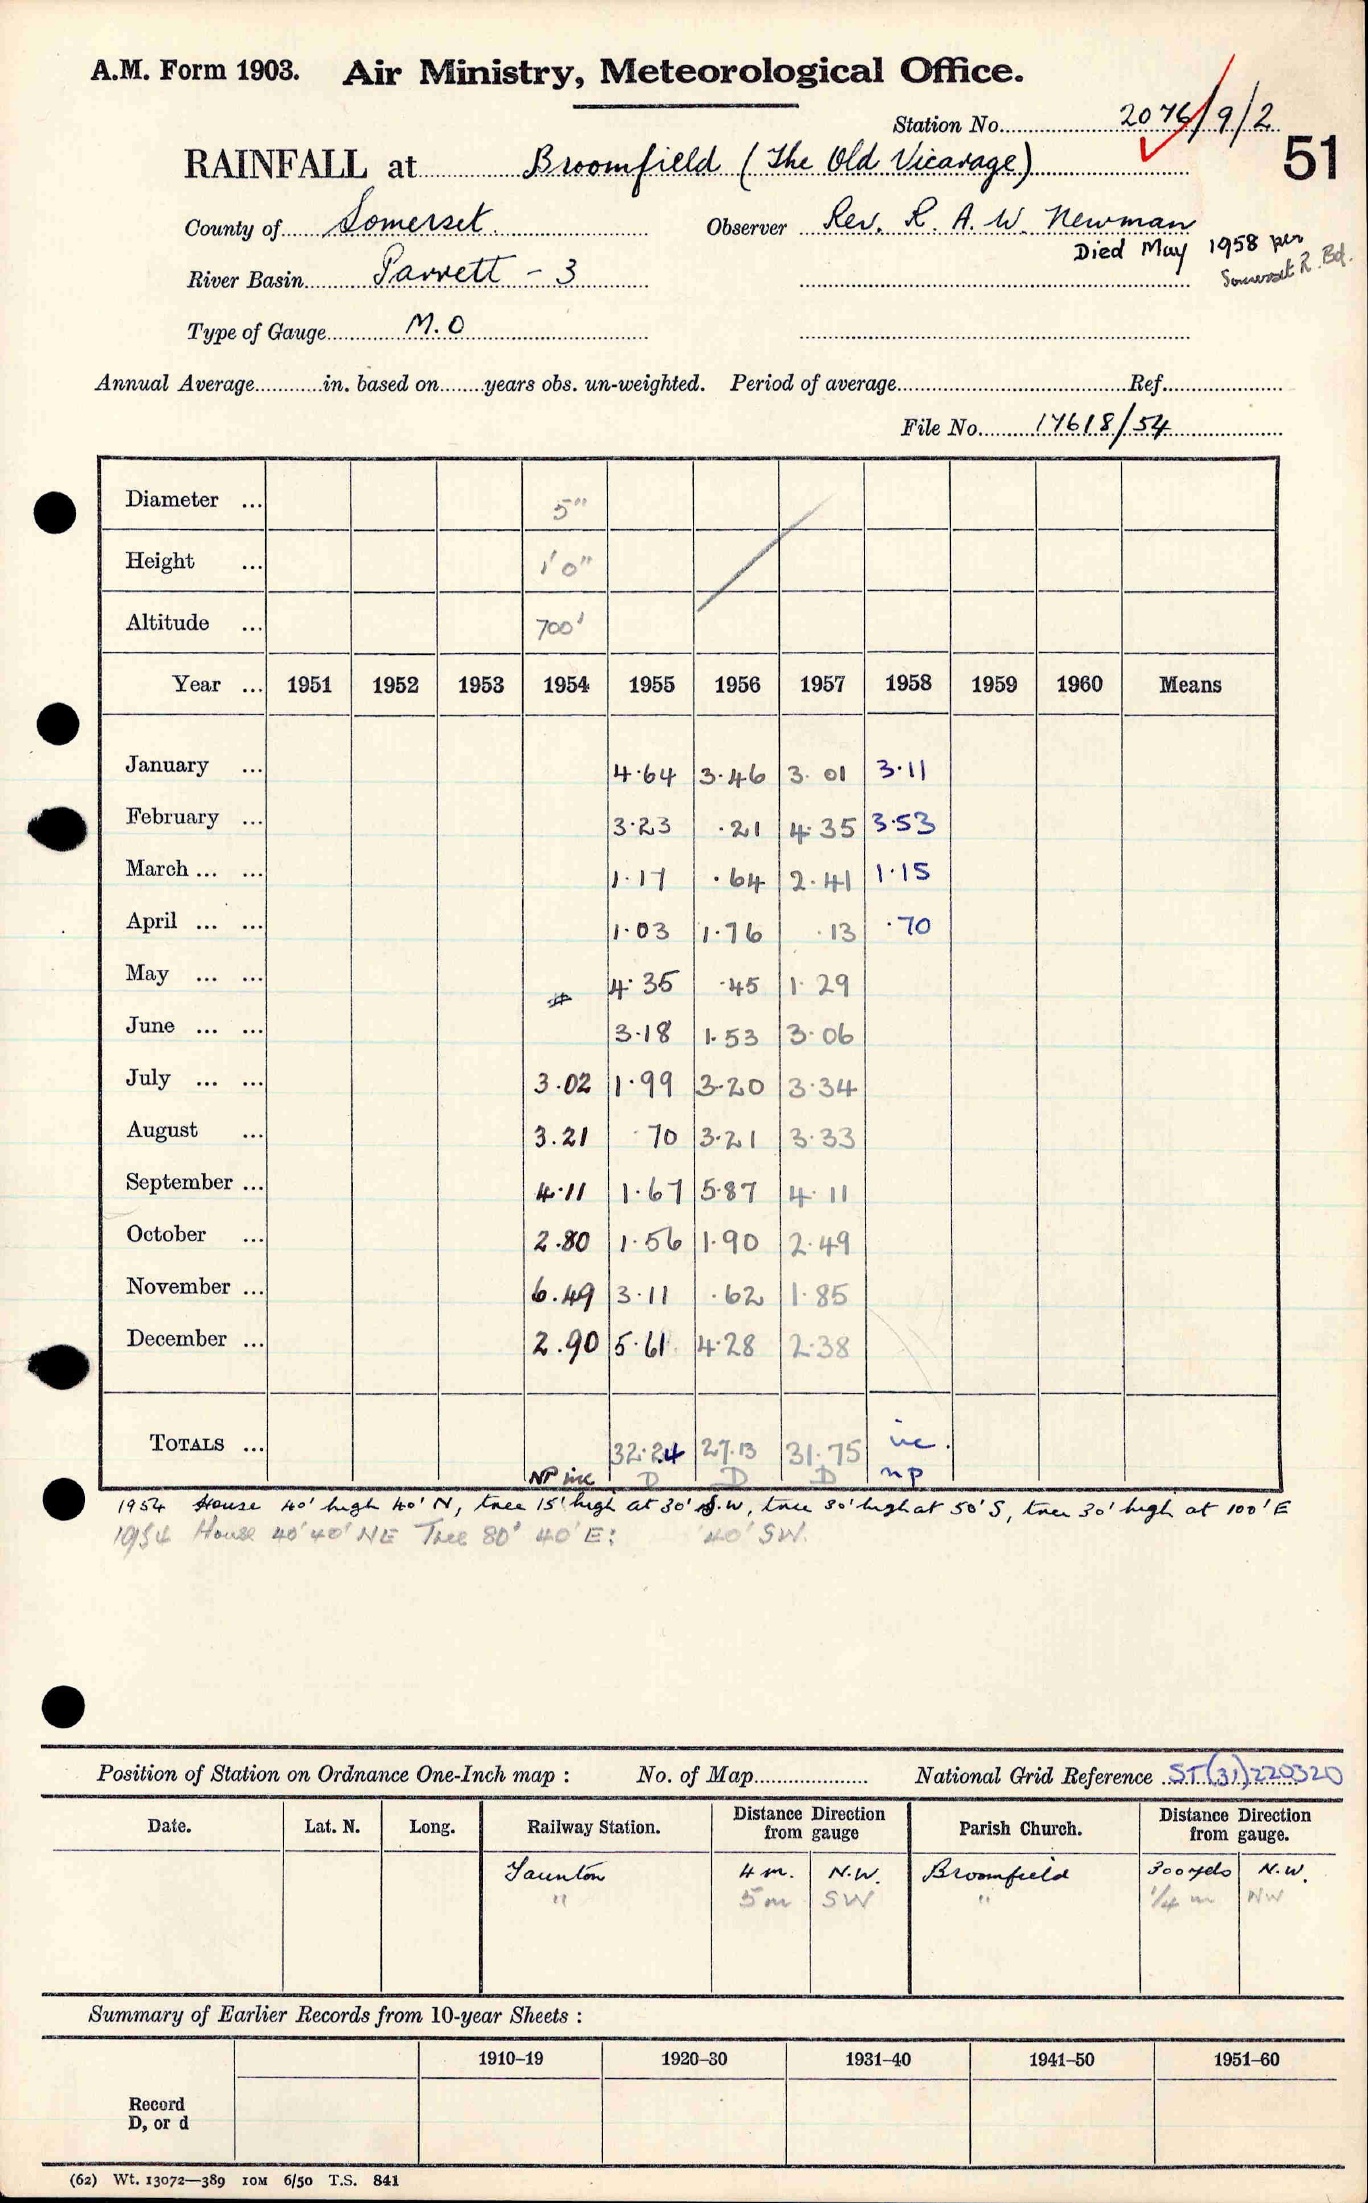 A.M. Form 1903. Air Ministry, Meteorological Office.
Station No. 2076/9/2
51
RAINFALL at Broomfield (The Old Vicarage)
County of Somerset. Observer Rev. R. A. W. Newman
Died May 1958 per
Somerset R. Bd.
River Basin Parrett - 3
Type of Gauge M.O
Annual Average in. based on years obs. un-weighted. Period of average Ref.
File No. 17618/54
Diameter ... 5"
Height ... 1'0"
Altitude ... 700'
Year ... 1951 1952 1953 1954 1955 1956 1957 1958 1959 1960 Means
January ... 4.64 3.46 3.01 3.11
February ... 3.23 .21 4.35 3.53
March ... ... 1.17 .64 2.41 1.15
April ... ... 1.03 1.76 .13 .70
May ... ... 4.35 .45 1.29
June ... ... 3.18 1.53 3.06
July ... ... 3.02 1.99 3.20 3.34
August ... 3.21 .70 3.21 3.33
September ... 4.11 1.67 5.87 4.11
October ... 2.80 1.56 1.90 2.49
November ... 6.49 3.11 .62 1.85
December ... 2.90 5.61 4.28 2.38
TOTALS ... 32.24 27.13 31.75 inc.
NP inc D D D np
1954 House 40' high 40' N, tree 15' high at 30' S.W, tree 30' high at 50' S, tree 30' high at 100' E
1954 House 40' 40' NE Tree 80' 40' E; 40' SW.
Position of Station on Ordnance One-Inch map : No. of Map National Grid Reference ST(31)220320
Date. Lat. N. Long. Railway Station. Distance Direction from gauge Parish Church. Distance Direction from gauge.
Taunton 4 m. N.W. Broomfield 300 yds N.W.
" 5 m SW " 1/4 m NW
Summary of Earlier Records from 10-year Sheets :
1910–19 1920–30 1931–40 1941–50 1951–60
Record
D, or d
(62) Wt. 13072—389 IOM 6/50 T.S. 841